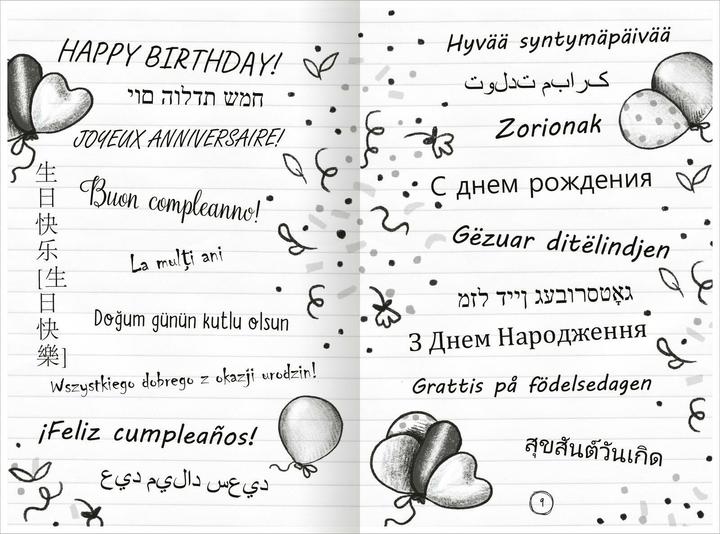 HAPPY BIRTHDAY!
חמש תדלוה םוי
JOYEUX ANNIVERSAIRE!
生日快乐[生日快樂]
Buon compleanno!
La mulţi ani
Doğum günün kutlu olsun
Wszystkiego dobrego z okazji urodzin!
¡Feliz cumpleaños!
ديعس داليم ديع
Hyvää syntymäpäivää
کرابم تدلوت
Zorionak
С днем рождения
Gëzuar ditëlindjen
גאָטסרובעג ןייד לזמ
З Днем Народження
Grattis på födelsedagen
สุขสันต์วันเกิด
9